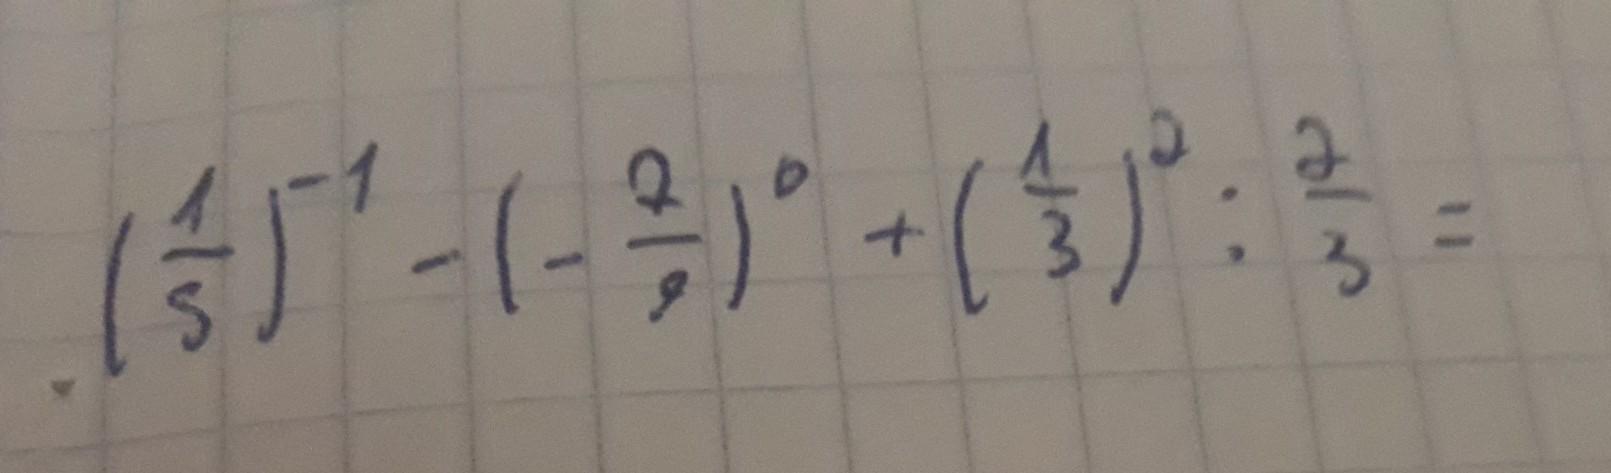 (1/5)^-1 - (-2/9)^0 + (1/3)^2 : 2/3 =